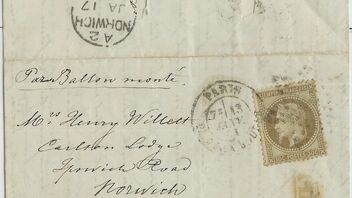 A 2
NORWICH
JA 17
Par Ballon monté.
PARIS
Mrs Henry Willett
Carlton Lodge
Ipswich Road
Norwich